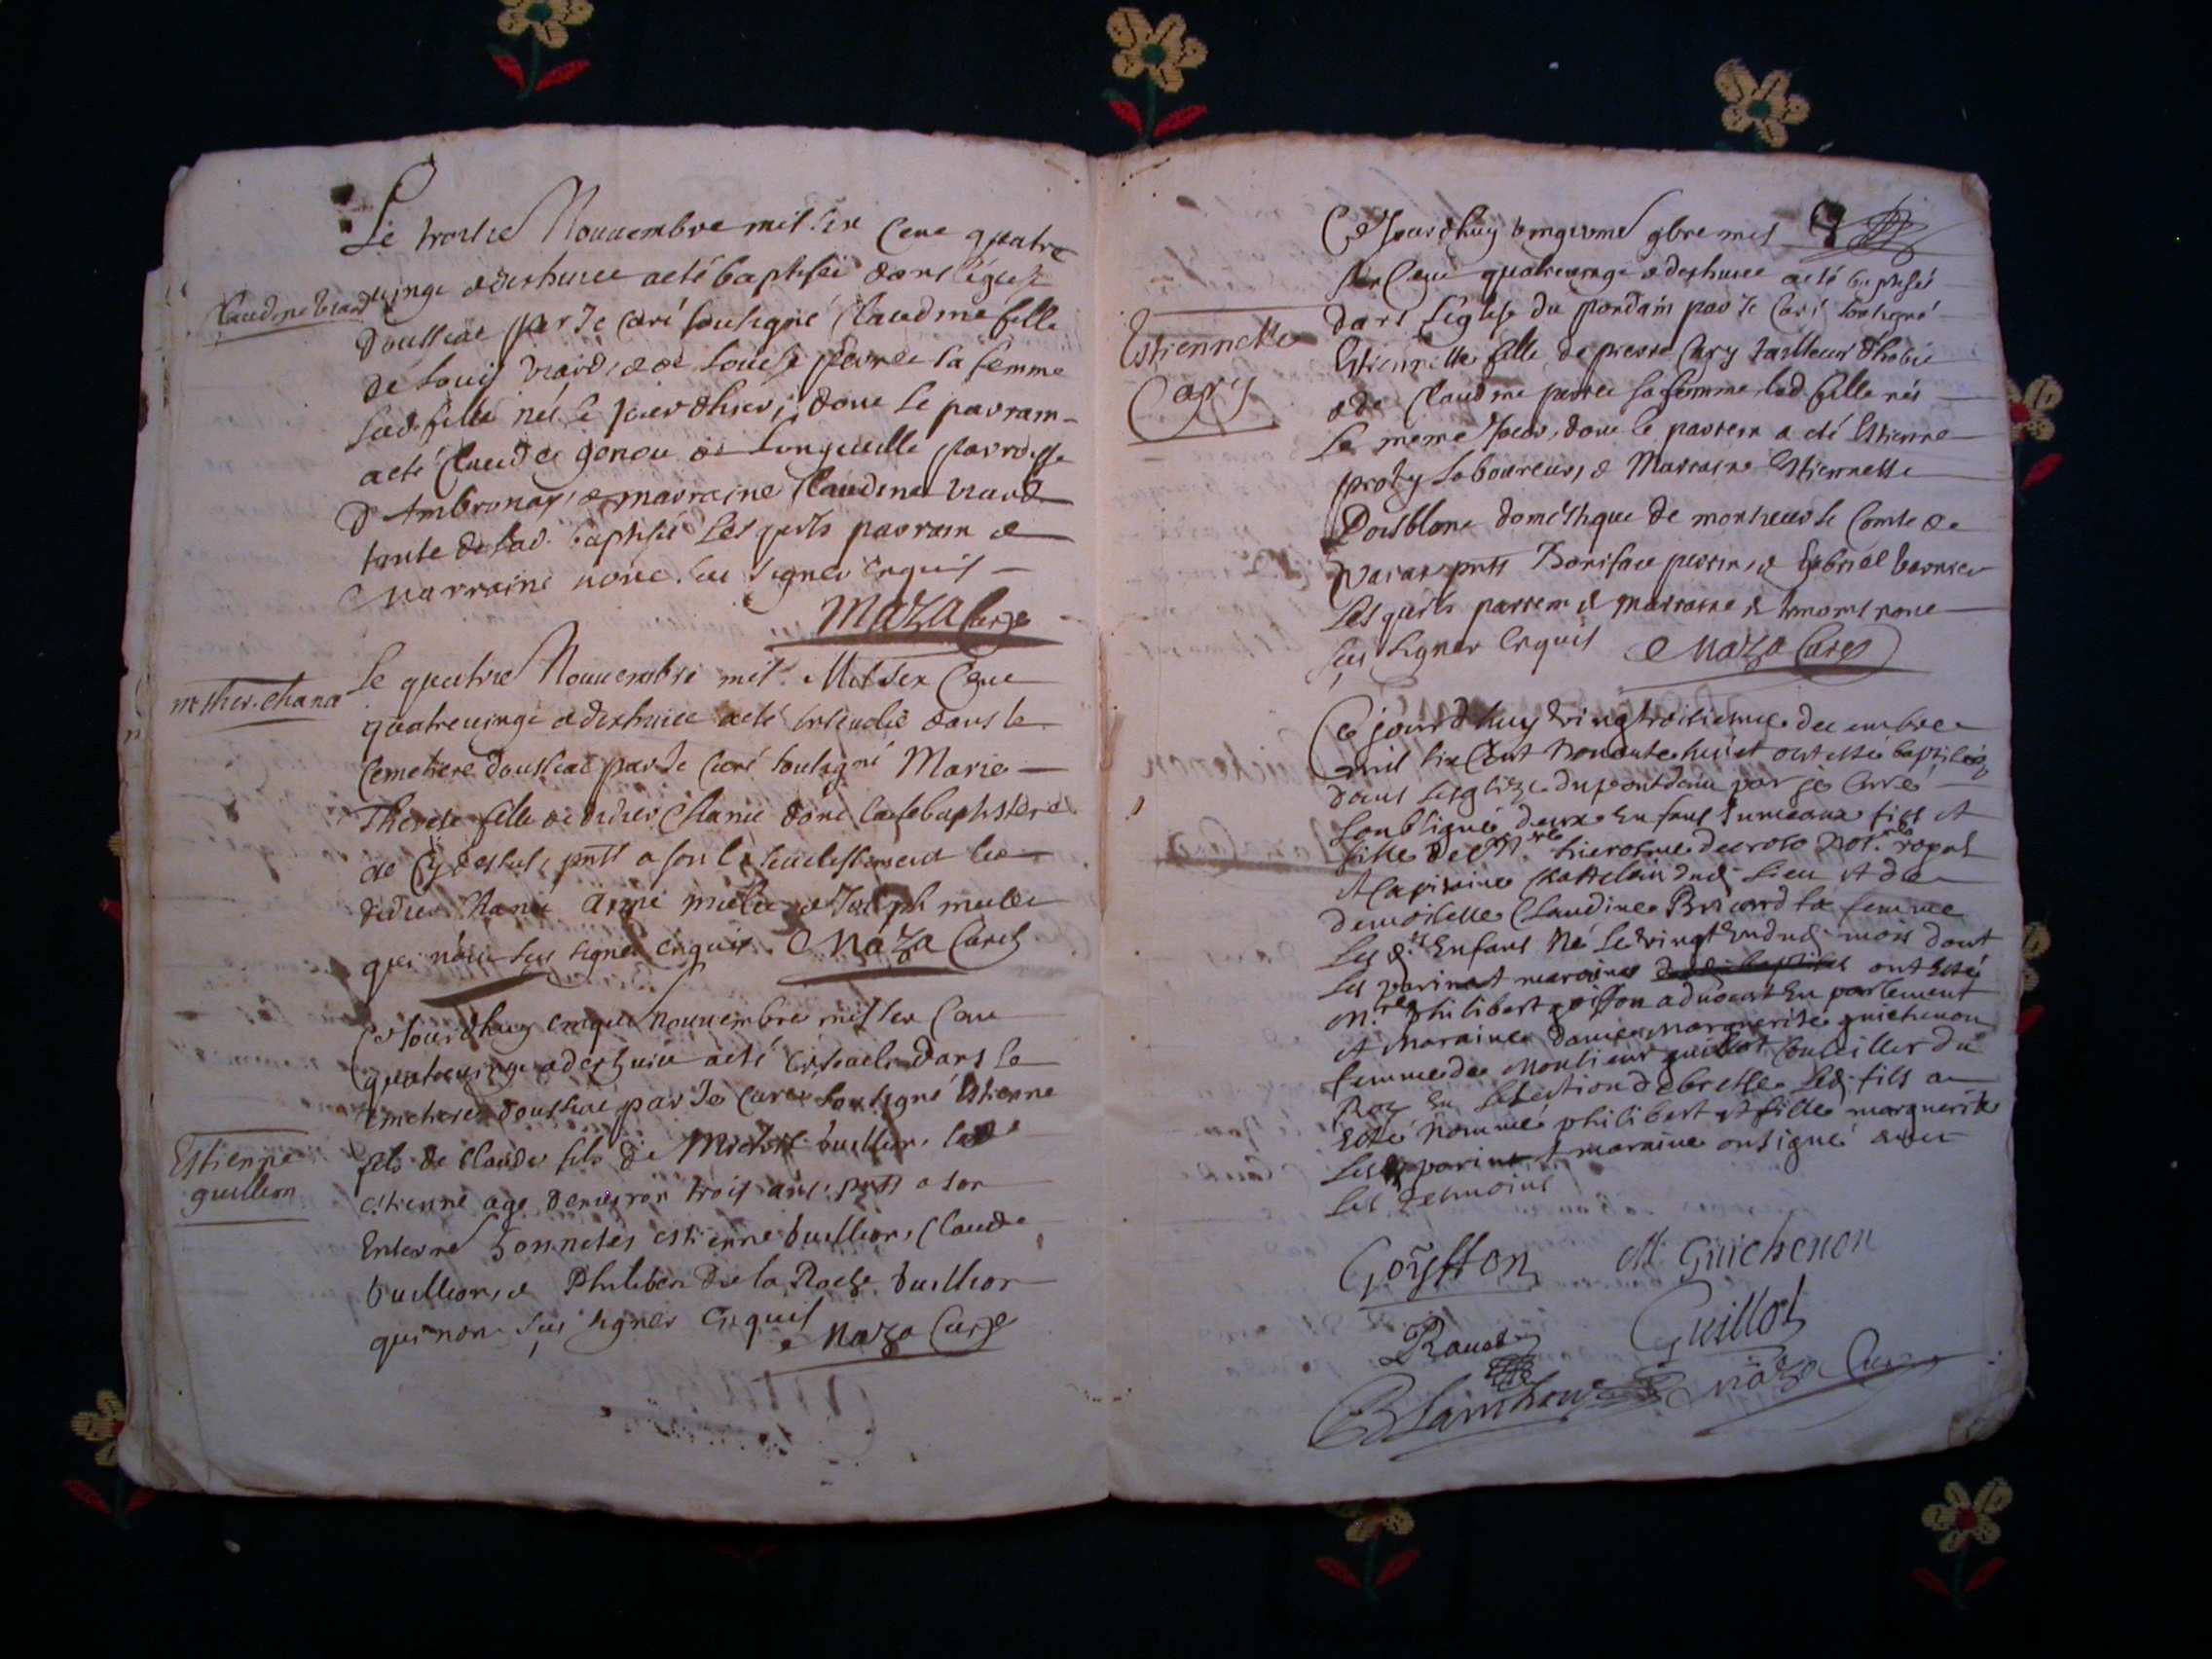 Le troisie Nouuembre mil six Cent quatre
Claudine Viard
uingt & dixhuict a esté baptisée dans l'église
Doussiat par Je Curé soubsigné Claudine fille
de Louis Viard, & de Louise la femme
lad. fille née le jour d'hier, dont le parrain
a esté Claude de Longeuille parroisse
D'Ambronay, & marraine Claudine Viard
tante de lad. baptisée Lesquels parrain &
Marraine n'ont sceu signer Enquis
Maza Curé
m. ther. Chana
Le quatrie Nouuembre mil. Mil six Cent
quatreuingt & dixhuict a esté enseuelie dans le
Cemetiere doussiat par Je Curé soubsigné Marie
Therese fille de didier Chanu dont
de Cy dessus, pnts a son enseuelissement led
didier Chanu & Joseph
qui n'ont sceu signer enquis. Maza Curé
Ce Jourdhuy cinquie Nouuembre mil six Cent
quatreuingt & dixhuict a esté enseueli dans le
Cemetiere doussiat par Je Curé soubsigné Estienne
Estienne
guillion
fils de Claude fils de Michel vuillion, led
Estienne agé denuiron trois ans. pnts a son
Enterre honnetes estienne vuillion, Claude
vuillion, & Philibert De la Roche vuillion
qui n'ont sceu signer Enquis Maza Curé
Ce Jourdhuy 9bre mil
six Cent quatreuingt & dixhuict a esté baptisée
dans l'église du pondain par Je Curé soubsigné
Estiennette
Cary
Estiennette fille de pierre Cary tailleur d'habit
& de Claudine sa femme lad. fille née
le meme Jour, dont le parrein a esté Estienne
proby laboureur, & Marraine Estiennette
Doisblanc domestique de monsieur le Comte de
Varax pnts Boniface perrin, & Gabriel
Lesquels parrein & marraine & temoins n'ont
sceu signer Enquis Maza Curé
Ce jourdhuy vingtroisieme decembre
mil six Cent Nonante huict ont esté baptisés
dans lesglize du pontdain par je Curé
soubsigné deux Enfans Jumeaux fils et
fille de Mre hierosme not.re royal
et Capitaine Chattelain dud. lieu et de
demoiselle Claudine Bricard sa femme
Les d.ts Enfans Né le vingt dud. mois dont
Les parin et maraines ont Esté
M.re philibert goiffon aduocat En parlement
et Maraine dame Marguerite guichenon
femme de Monsieur guillot Conseiller du
Roy En Lelection de bresse led. fils a
Esté Nommé philibert et fille marguerite
Lesd. parin et maraine ont signé auec
Les tesmoins
Goyffon M Guichenon
Rauat Guillot
Blanchon Maza Curé